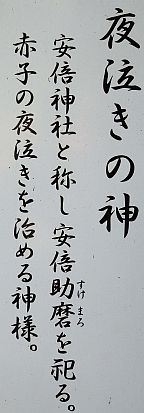 夜泣きの神
安倍神社と称し安倍助磨を祀る。
すけ まろ
赤子の夜泣きを治める神様。